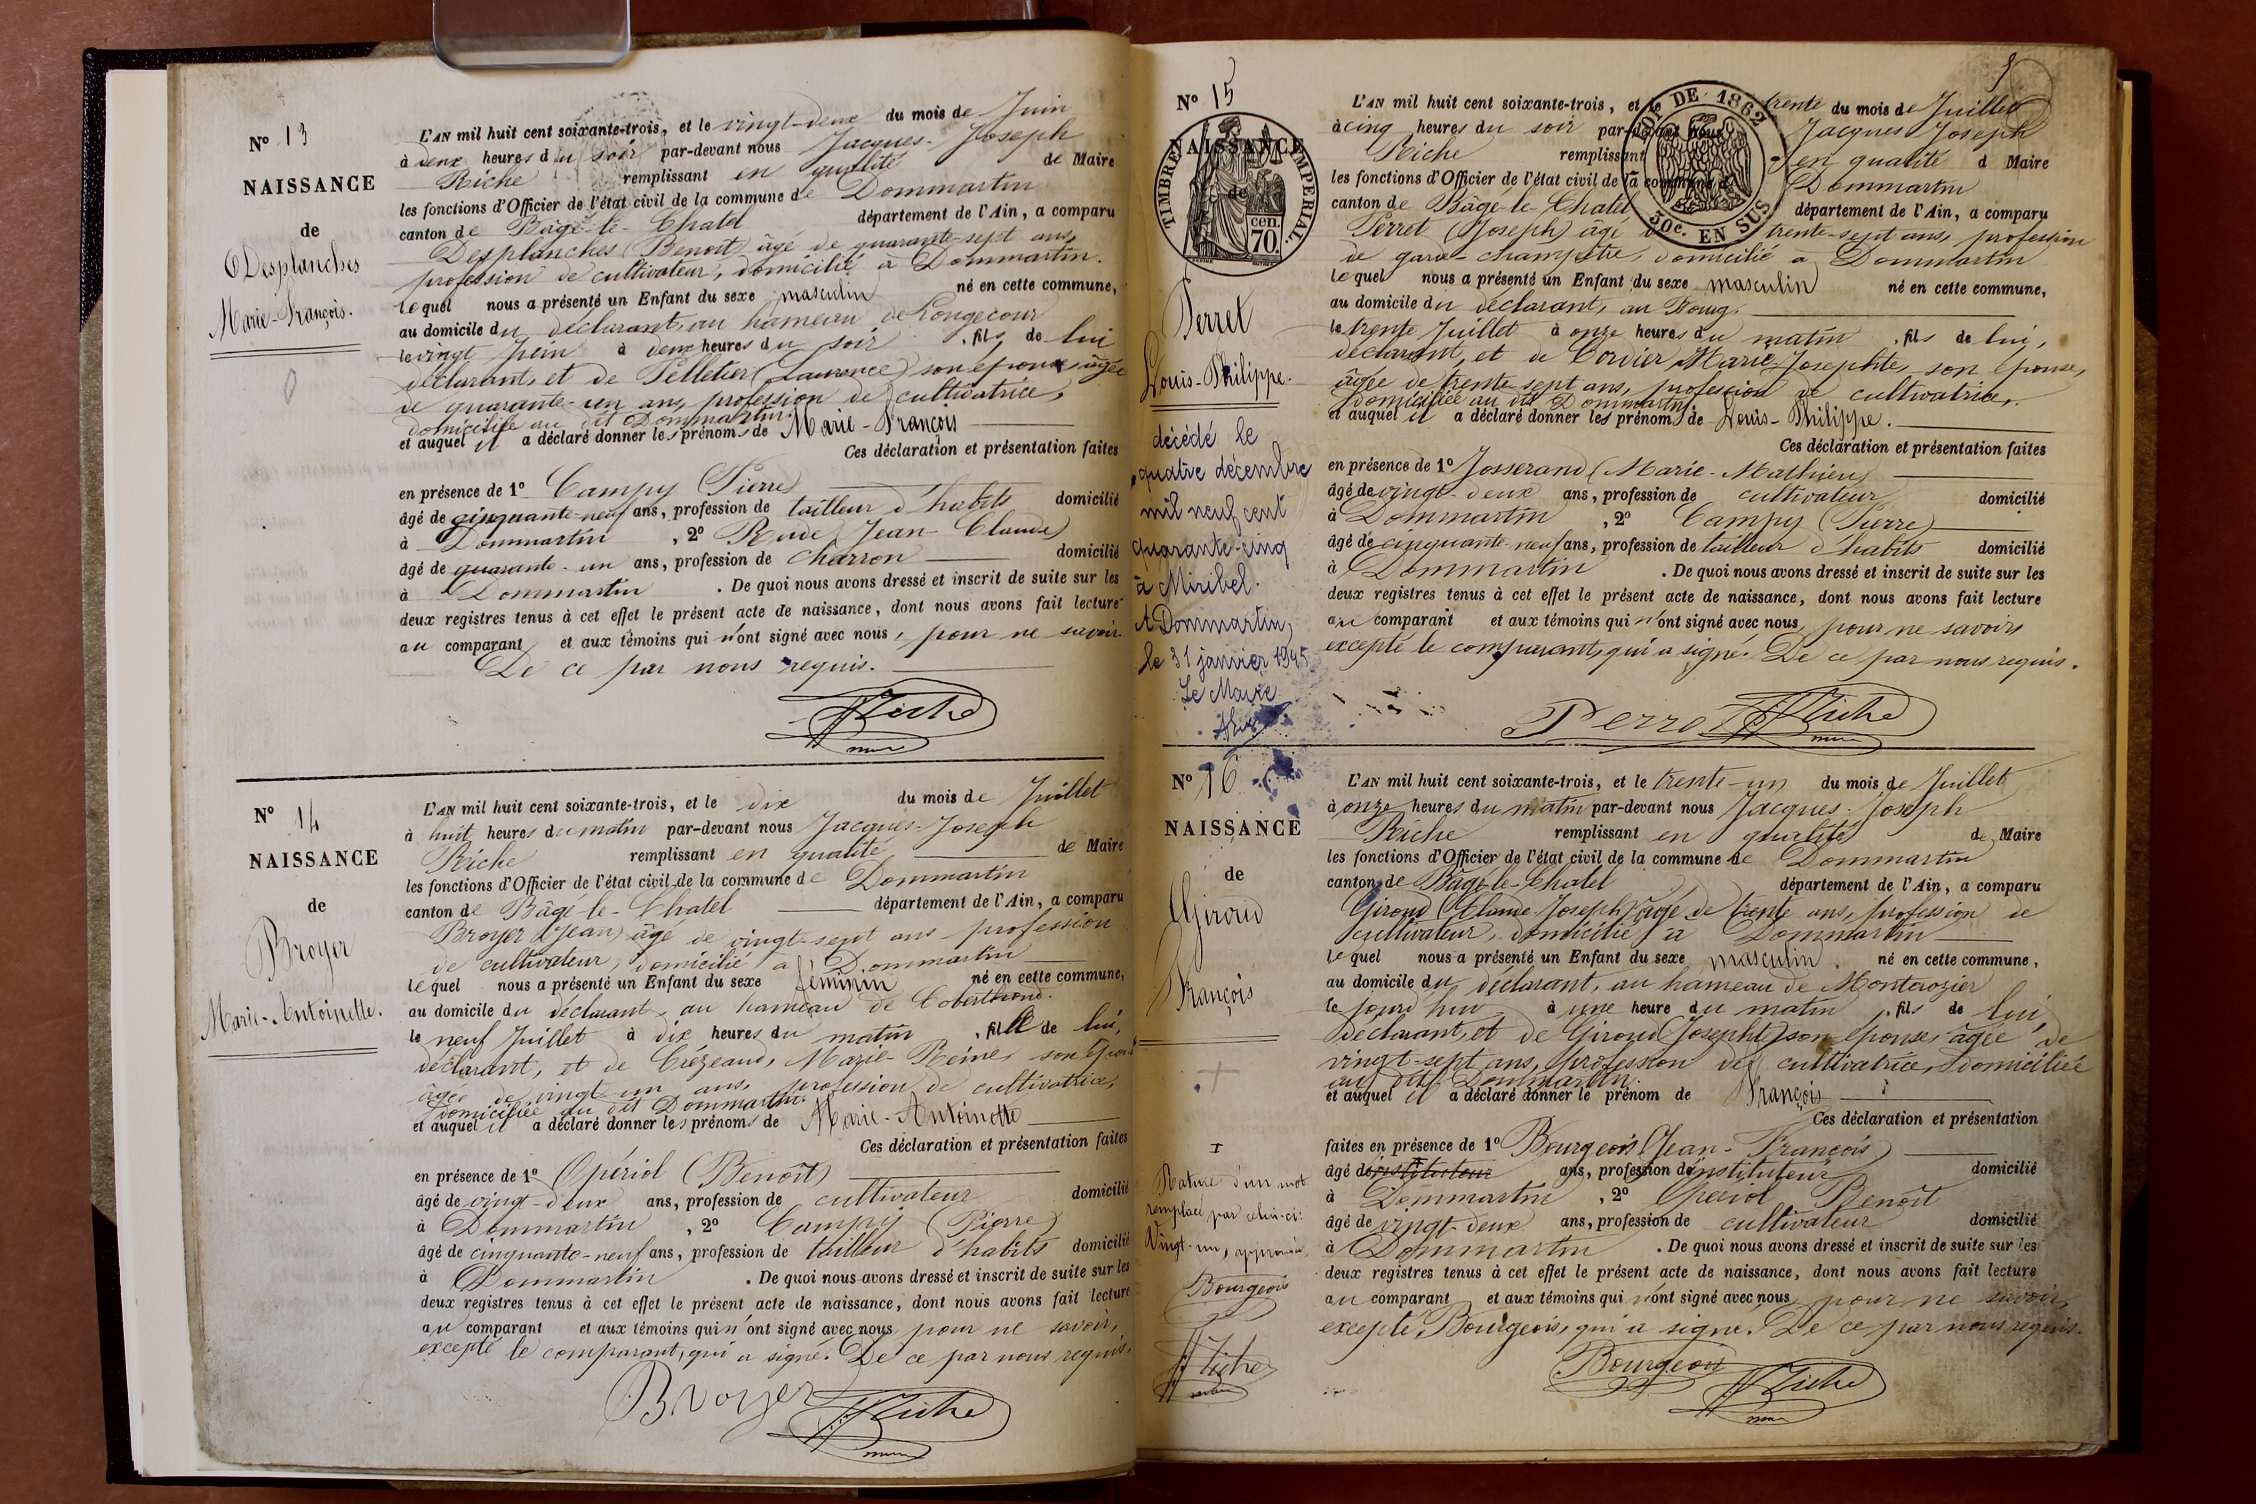 N° 13
NAISSANCE
de
Desplanches
Marie-François.
L'AN mil huit cent soixante-trois, et le vingt-deux du mois de Juin
à deux heures du soir par-devant nous Jacques-Joseph
Riche remplissant en qualité de Maire
les fonctions d'Officier de l'état civil de la commune de Dommartin
canton de Bâgé-le-Chatel département de l'Ain, a comparu
Desplanches (Benoit) âgé de quarante-sept ans,
profession de cultivateur, domicilié à Dommartin.
lequel nous a présenté un Enfant du sexe masculin né en cette commune,
au domicile du déclarant, au hameau de Longecour
le vingt Juin à deux heures du soir, fils de lui
déclarant, et de Pelletier (Laurence) son épouse, âgée
de quarante-un ans, profession de cultivatrice,
domiciliée au dit Dommartin.
et auquel il a déclaré donner les prénoms de Marie-François
Ces déclaration et présentation faites
en présence de 1° Campy (Pierre)
âgé de cinquante-neuf ans, profession de tailleur d'habits domicilié
à Dommartin, 2° Rude Jean-Claude)
âgé de quarante-un ans, profession de charron domicilié
à Dommartin. De quoi nous avons dressé et inscrit de suite sur les
deux registres tenus à cet effet le présent acte de naissance, dont nous avons fait lecture
au comparant et aux témoins qui n'ont signé avec nous, pour ne savoir.
De ce par nous requis.
Riche
N° 14
NAISSANCE
de
Broyer
Marie-Antoinette.
L'AN mil huit cent soixante-trois, et le dix du mois de Juillet
à huit heures du matin par-devant nous Jacques-Joseph
Riche remplissant en qualité de Maire
les fonctions d'Officier de l'état civil de la commune de Dommartin
canton de Bâgé-le-Chatel département de l'Ain, a comparu
Broyer (Jean) âgé de vingt-sept ans profession
de cultivateur, domicilié à Dommartin
lequel nous a présenté un Enfant du sexe féminin né en cette commune,
au domicile du déclarant, au hameau de
le neuf Juillet à dix heures du matin, fille de lui,
déclarant, et de Marie-Reine, son épouse
âgée de vingt-un ans, profession de cultivatrice,
domiciliée au dit Dommartin.
et auquel il a déclaré donner les prénoms de Marie-Antoinette
Ces déclaration et présentation faites
en présence de 1° Opériol (Benoît)
âgé de vingt-deux ans, profession de cultivateur domicilié
à Dommartin, 2° Campy (Pierre)
âgé de cinquante-neuf ans, profession de tailleur d'habits domicilié
à Dommartin. De quoi nous avons dressé et inscrit de suite sur les
deux registres tenus à cet effet le présent acte de naissance, dont nous avons fait lecture
au comparant et aux témoins qui n'ont signé avec nous pour ne savoir,
excepté le comparant, qui a signé. De ce par nous requis.
Broyer Riche
N° 15
NAISSANCE
de
TIMBRE IMPERIAL.
70 cen.
Perret
Louis-Philippe.
décédé le
quatre décembre
mil neuf cent
quarante-cinq
à Miribel.
A Dommartin,
le 31 janvier 1945
Le Maire
LOI DE 1862
50c. EN SUS
L'AN mil huit cent soixante-trois, et le trente du mois de Juillet
à cinq heures du soir par-devant nous Jacques Joseph
Riche remplissant en qualité d Maire
les fonctions d'Officier de l'état civil de la commune d Dommartin
canton de Bâgé-le-Chatel département de l'Ain, a comparu
Perret (Joseph) âgé trente-sept ans, profession
de garde-champêtre, domicilié à Dommartin
lequel nous a présenté un Enfant du sexe masculin né en cette commune,
au domicile du déclarant, au Bourg.
le trente Juillet à onze heures du matin, fils de lui,
déclarant, et de Cordier Marie-Josephte, son épouse,
âgée de trente sept ans, profession de cultivatrice,
domiciliée au dit Dommartin.
et auquel il a déclaré donner les prénoms de Louis-Philippe.
Ces déclaration et présentation faites
en présence de 1° Josserand (Marie-Mathieu)
âgé de vingt-deux ans, profession de cultivateur domicilié
à Dommartin, 2° Campy (Pierre)
âgé de cinquante-neuf ans, profession de tailleur d'habits domicilié
à Dommartin. De quoi nous avons dressé et inscrit de suite sur les
deux registres tenus à cet effet le présent acte de naissance, dont nous avons fait lecture
au comparant et aux témoins qui n'ont signé avec nous, pour ne savoir,
excepté le comparant, qui a signé. De ce par nous requis.
Perret Riche
N° 16
NAISSANCE
de
Giroud
François
L'AN mil huit cent soixante-trois, et le trente-un du mois de Juillet
à onze heures du matin par-devant nous Jacques-Joseph
Riche remplissant en qualité de Maire
les fonctions d'Officier de l'état civil de la commune de Dommartin
canton de Bâgé-le-Chatel département de l'Ain, a comparu
Giroud (Claude-Joseph) âgé de trente ans, profession de
cultivateur, domicilié à Dommartin
lequel nous a présenté un Enfant du sexe masculin. né en cette commune,
au domicile du déclarant, au hameau de Montcrozier
le jourd'hui à une heure du matin, fils de lui,
déclarant, et de Giroud (Josephte) son épouse, âgée de
vingt-sept ans, profession de cultivatrice, domiciliée
au dit Dommartin.
et auquel il a déclaré donner le prénom de François
Ces déclaration et présentation
faites en présence de 1° Bourgeois (Jean-François)
âgé de instituteur ans, profession de instituteur domicilié
à Dommartin, 2° Opériol Benoît
âgé de vingt-deux ans, profession de cultivateur domicilié
à Dommartin. De quoi nous avons dressé et inscrit de suite sur les
deux registres tenus à cet effet le présent acte de naissance, dont nous avons fait lecture
au comparant et aux témoins qui n'ont signé avec nous pour ne savoir,
excepté Bourgeois, qui a signé. De ce par nous requis.
Bourgeois Riche
I
Rature d'un mot
remplacé par celui-ci:
Vingt-un, approuvé.
Bourgeois
Riche